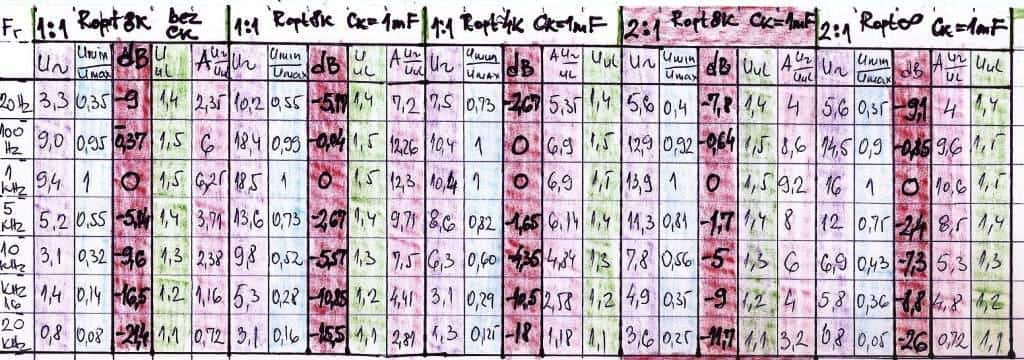 Fr 1:1 Ropt 8K bez CK 1:1 Ropt 8K CK=1mF 1:1 Ropt 4K CK=1mF 2:1 Ropt 8K CK=1mF 2:1 Ropt ∞ CK=1mF
U~ Umin/Umax dB U ul A U~/Uul U~ Umin/Umax dB U ul A U~/Uul U~ Umin/Umax dB A U~/UL Uul U~ Umin/Umax dB Uul A U~/Uul U~ Umin/Umax dB A U~/Uul Uul
20Hz 3,3 0,35 -9 1,4 2,35 10,2 0,55 -5,17 1,4 7,2 7,5 0,73 -2,67 5,35 1,4 5,6 0,4 -7,8 1,4 4 5,6 0,35 -9,1 4 1,4
100 Hz 9,0 0,95 -0,37 1,5 6 18,4 0,99 -0,04 1,5 12,26 10,4 1 0 6,9 1,5 12,9 0,92 -0,64 1,5 8,6 14,5 0,9 -0,85 9,6 1,5
1 KHz 9,4 1 0 1,5 6,25 18,5 1 0 1,5 12,3 10,4 1 0 6,9 1,5 13,9 1 0 1,5 9,2 16 1 0 10,6 1,5
5 KHz 5,2 0,55 -5,14 1,4 3,71 13,6 0,73 -2,67 1,4 9,71 8,6 0,82 -1,65 6,14 1,4 11,3 0,81 -1,7 1,4 8 12 0,75 -2,4 8,5 1,4
10 KHz 3,1 0,32 -9,6 1,3 2,38 9,8 0,52 -5,57 1,3 7,5 6,3 0,60 -4,35 4,84 1,3 7,8 0,56 -5 1,3 6 6,9 0,43 -7,3 5,3 1,3
KHz 16 1,4 0,14 -16,5 1,2 1,16 5,3 0,28 -10,85 1,2 4,41 3,1 0,29 -10,5 2,58 1,2 4,9 0,35 -9 1,2 4 5,8 0,36 -8,8 4,8 1,2
20 KHz 0,8 0,08 -21,4 1,1 0,72 3,1 0,16 -15,5 1,1 2,81 1,3 0,125 -18 1,18 1,1 3,6 0,25 -11,7 1,1 3,2 0,8 0,05 -26 0,72 1,1